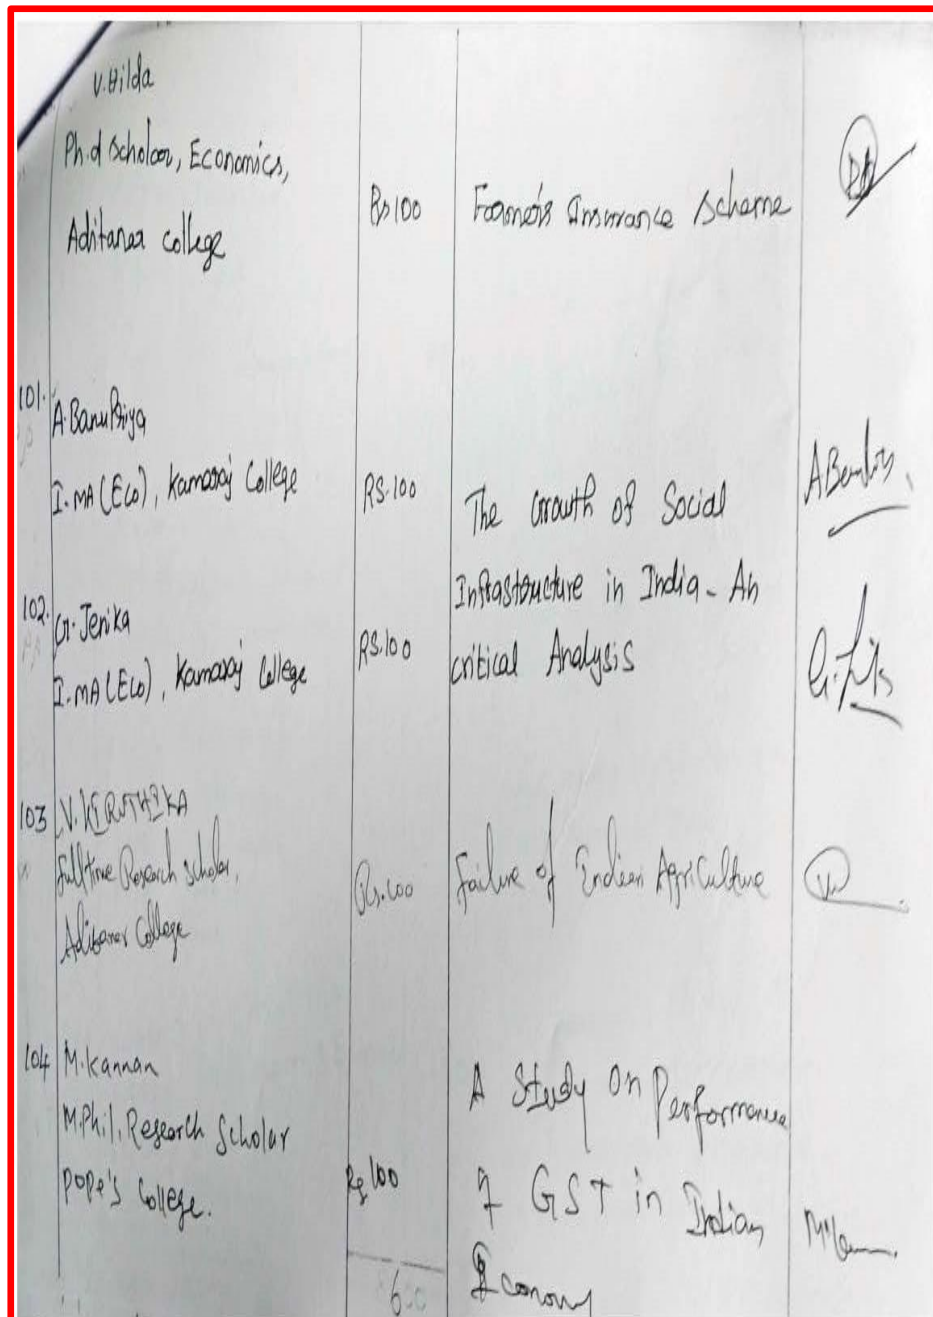 V. Hilda
Ph.d Scholar, Economics,
Aditanar College
Rs 100
Farmer's Insurance Scheme
101.
A. BanuPriya
I. MA (Eco), Kamaraj College
RS. 100
The Growth of Social
Infrastructure in India - An
critical Analysis
102.
G. Jenika
I. MA (Eco), Kamaraj College
RS. 100
103
V. KIRUTHIKA
Full time Research Scholar,
Aditanar College
Rs. 100
Failure of Indian Agriculture
104
M. Kannan
M.Phil, Research Scholar
Pope's College.
Rs 100
A Study on Performance
of GST in Indian
Economy